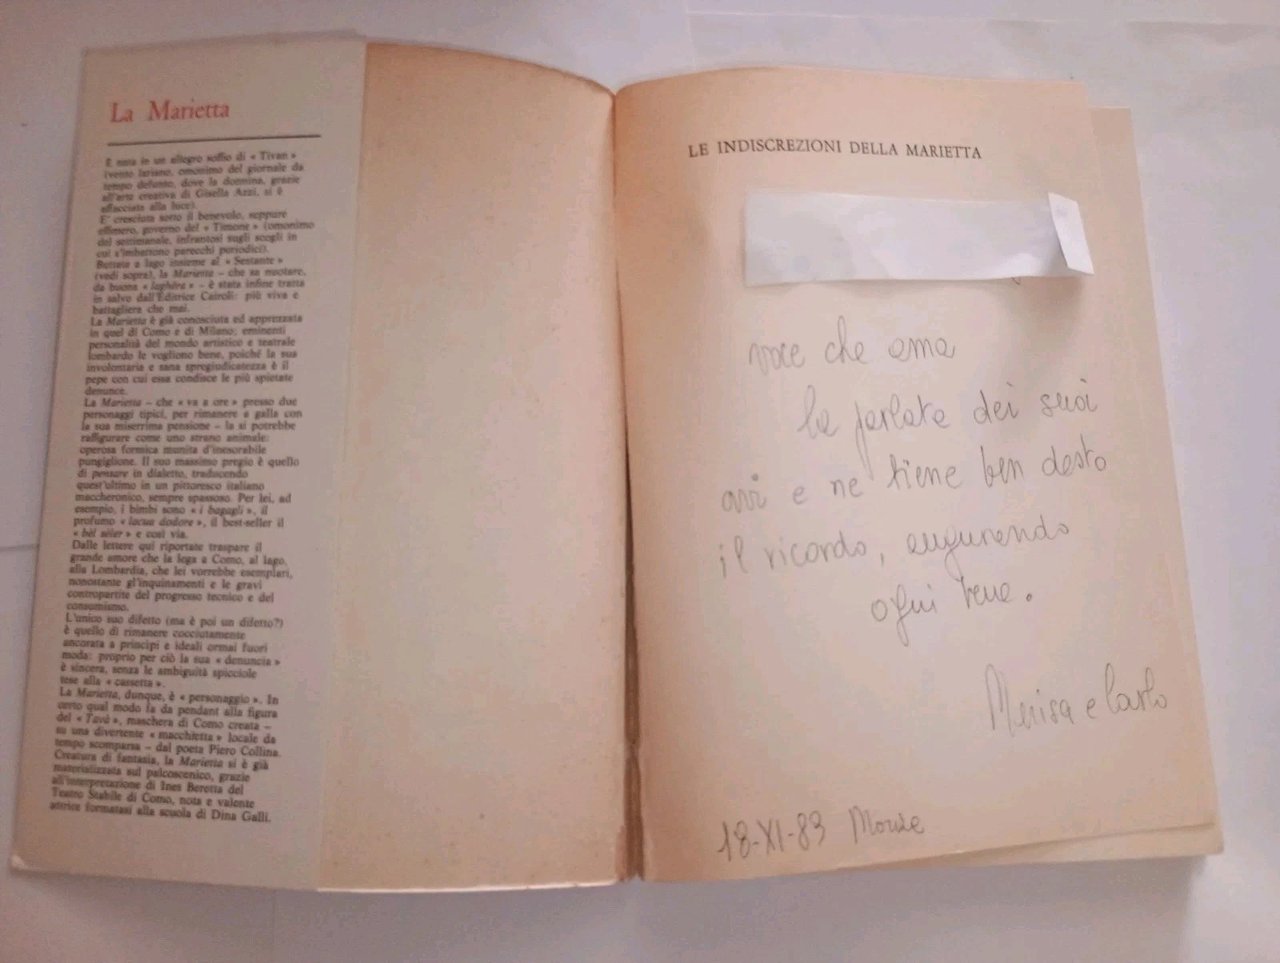 La Marietta
È nata in un allegro soffio di « Tivan »
(vento lariano, omonimo del giornale da
tempo defunto, dove la donnina, grazie
all'arte creativa di Gisella Azzi, si è
affacciata alla luce).
E' cresciuta sotto il benevolo, seppure
effimero, governo del « Timone » (omonimo
del settimanale, infrantosi sugli scogli in
cui s'imbattono parecchi periodici).
Buttata a lago insieme al « Sestante »
(vedi sopra), la Marietta – che sa nuotare,
da buona « laghéra » – è stata infine tratta
in salvo dall'Editrice Cairoli: più viva e
battagliera che mai.
La Marietta è già conosciuta ed apprezzata
in quel di Como e di Milano; eminenti
personalità del mondo artistico e teatrale
lombardo le vogliono bene, poiché la sua
involontaria e sana spregiudicatezza è il
pepe con cui essa condisce le più spietate
denunce.
La Marietta – che « va a ore » presso due
personaggi tipici, per rimanere a galla con
la sua miserrima pensione – la si potrebbe
raffigurare come uno strano animale:
operosa formica munita d'inesorabile
pungiglione. Il suo massimo pregio è quello
di pensare in dialetto, traducendo
quest'ultimo in un pittoresco italiano
maccheronico, sempre spassoso. Per lei, ad
esempio, i bimbi sono « i bagagli », il
profumo « lacua dadore », il best-seller il
« bèl séler » e così via.
Dalle lettere qui riportate traspare il
grande amore che la lega a Como, al lago,
alla Lombardia, che lei vorrebbe esemplari,
nonostante gl'inquinamenti e le gravi
contropartite del progresso tecnico e del
consumismo.
L'unico suo difetto (ma è poi un difetto?)
è quello di rimanere cocciutamente
ancorata a principi e ideali ormai fuori
moda: proprio per ciò la sua « denuncia »
è sincera, senza le ambiguità spicciole
tese alla « cassetta ».
La Marietta, dunque, è « personaggio ». In
certo qual modo fa da pendant alla figura
del « Tavà », maschera di Como creata –
su una divertente « macchietta » locale da
tempo scomparsa – dal poeta Piero Collina.
Creatura di fantasia, la Marietta si è già
materializzata sul palcoscenico, grazie
all'interpretazione di Ines Beretta del
Teatro Stabile di Como, nota e valente
attrice formatasi alla scuola di Dina Galli.
LE INDISCREZIONI DELLA MARIETTA
voce che ama
la parlata dei suoi
avi e ne tiene ben desto
il ricordo, augurando
ogni bene.
Marisa e Carlo
18-XI-83